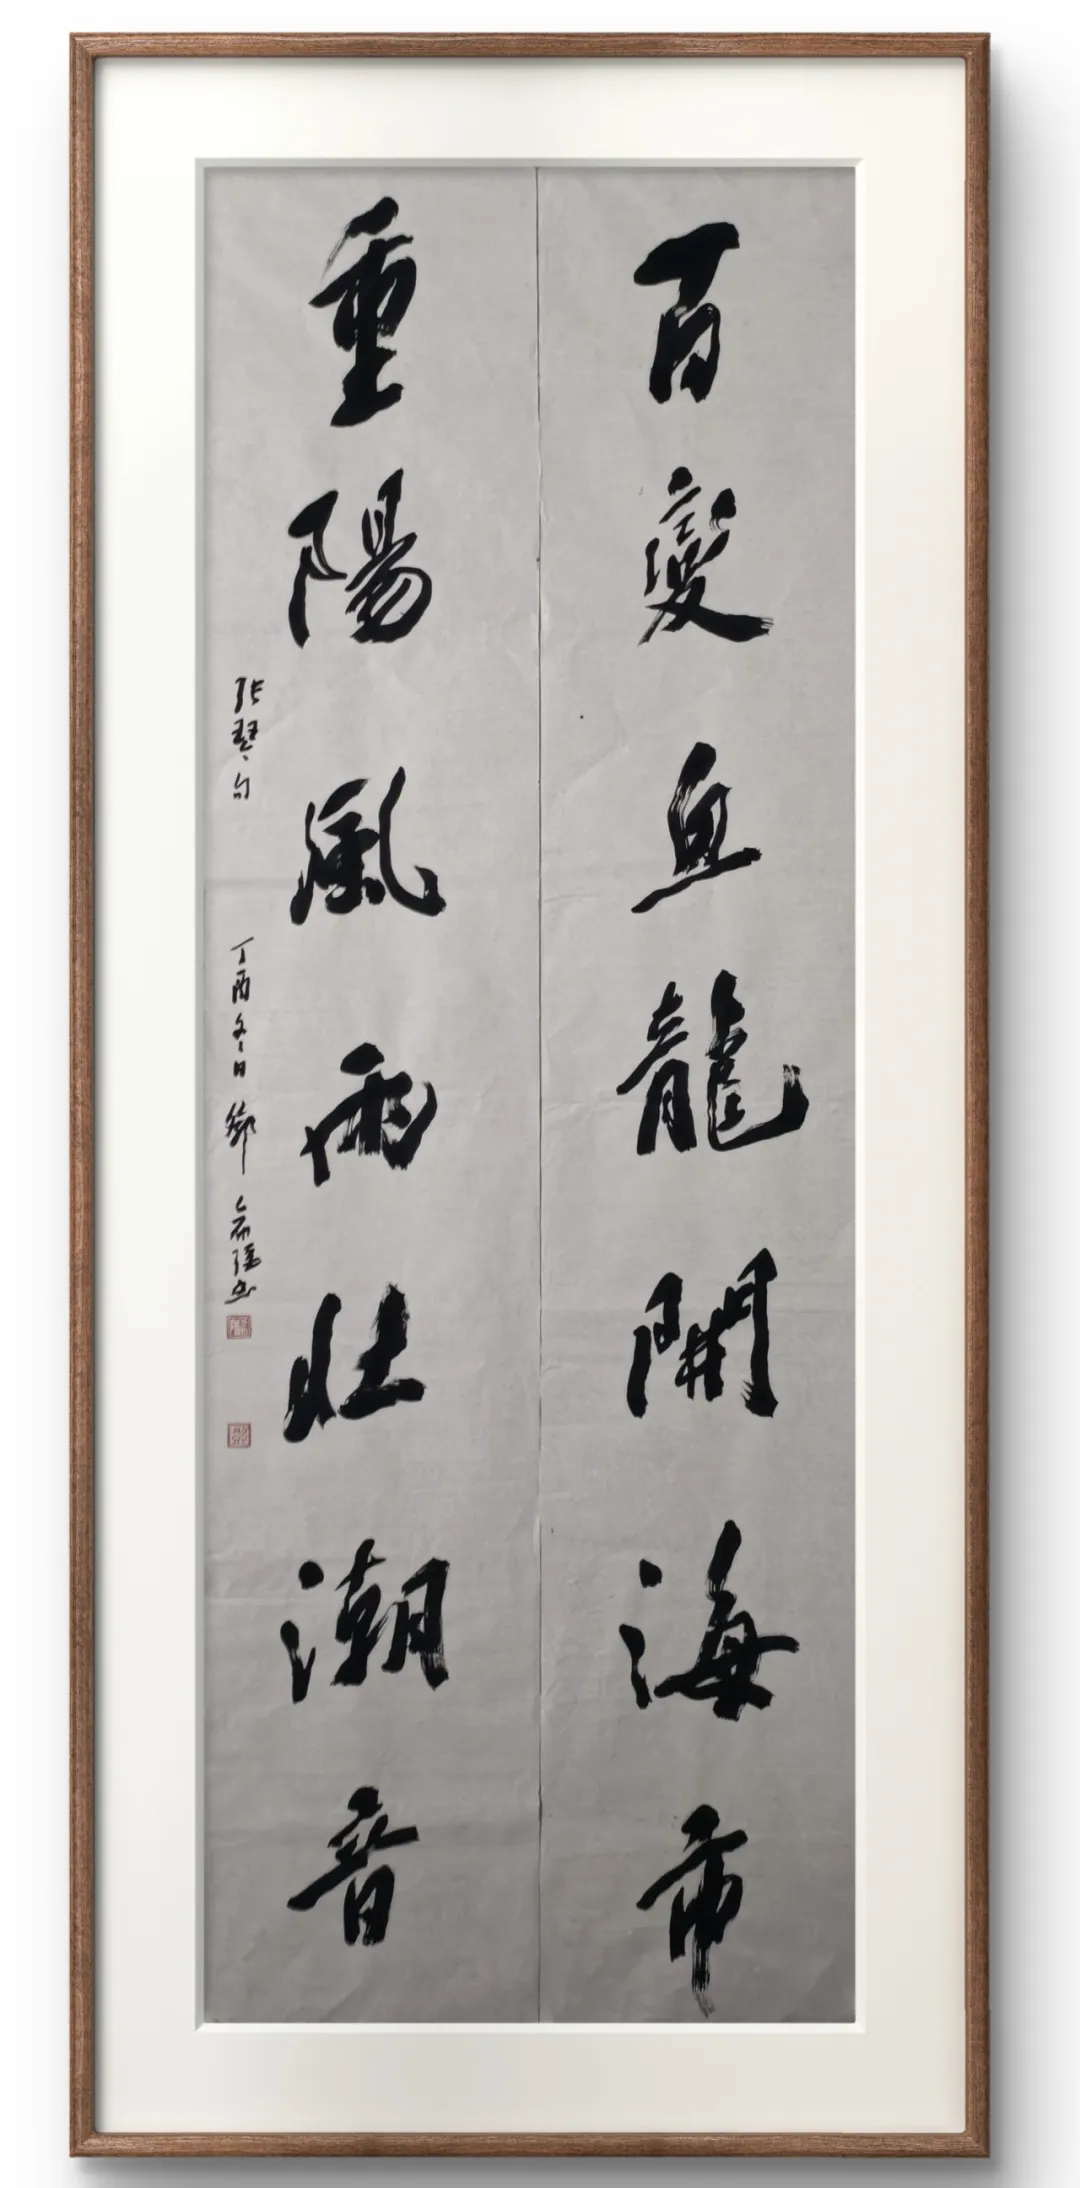 百變魚龍開海市
重陽風雨壯潮音
張琴句
丁酉冬日鄭俞強書